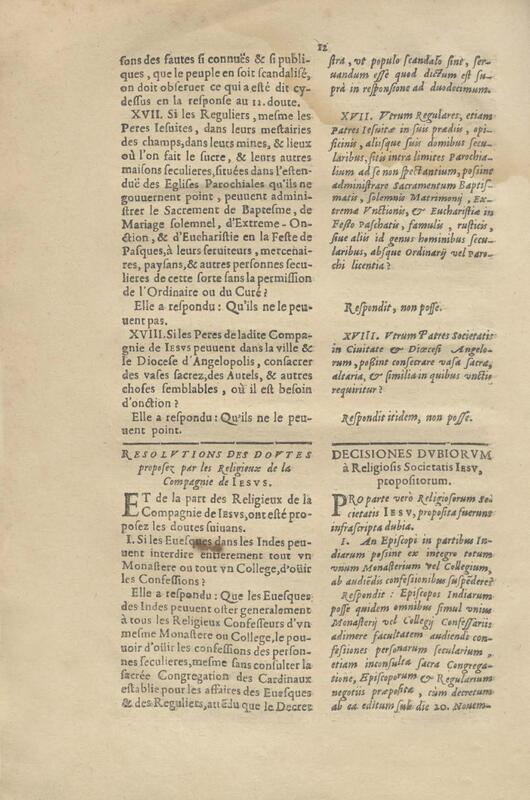 12
sons des fautes si connuës & si publi-
ques, que le peuple en soit scandalisé,
on doit obseruer ce qui a esté dit cy-
dessus en la response au 12. doute.
XVII. Si les Reguliers, mesme les
Peres Iesuites, dans leurs mestairies
des champs, dans leurs mines, & lieux
où l'on fait le sucre, & leurs autres
maisons seculieres, situées dans l'esten-
duë des Eglises Parochiales qu'ils ne
gouuernent point, peuuent admini-
strer le Sacrement de Baptesme, de
Mariage solemnel, d'Extreme-On-
ction, & d'Eucharistie en la Feste de
Pasques, à leurs seruiteurs, mercenai-
res, paysans, & autres personnes secu-
lieres de cette sorte sans la permission
de l'Ordinaire ou du Curé?
Elle a respondu: Qu'ils ne le peu-
uent pas.
XVIII. Si les Peres de ladite Compa-
gnie de IESVS peuuent dans la ville &
le Diocese d'Angelopolis, consacrer
des vases sacrez, des Autels, & autres
choses semblables, où il est besoin
d'onction?
Elle a respondu: Qu'ils ne le peu-
uent point.
RESOLVTIONS DES DOVTES
proposez par les Religieux de la
Compagnie de IESVS.
ET de la part des Religieux de la
Compagnie de IESVS, ont esté pro-
posez les doutes suiuans.
I. Si les Euesques dans les Indes peu-
uent interdire entierement tout vn
Monastere ou tout vn College, d'oüir
les Confessions?
Elle a respondu: Que les Euesques
des Indes peuuent oster generalement
à tous les Religieux Confesseurs d'vn
mesme Monastere ou College, le pou-
uoir d'oüir les confessions des person-
nes seculieres, mesme sans consulter la
sacrée Congregation des Cardinaux
establie pour les affaires des Euesques
& des Reguliers, attédu que le Decret
stra, vt populo scandalo sint, ser-
uandum esse quod dictum est su-
prà in responsione ad duodecimum.
XVII. Vtrum Regulares, etiam
Patres Iesuitæ in suis prædiis, opi-
ficinis, aliisque suis domibus secu-
laribus, sitis intra limites Parochia-
lium ad se non spectantium, possint
administrare Sacramentum Baptis-
matis, solemnis Matrimonij, Ex-
tremæ Vnctionis, & Eucharistiæ in
Festo Paschatis, famulis, rusticis,
siue aliis id genus hominibus secu-
laribus, absque Ordinarij vel Paro-
chi licentia?
Respondit, non posse.
XVIII. Vtrum Patres Societatis
in Ciuitate & Diœcesi Angelo-
rum, possint consecrare vasa sacra,
altaria, & similia in quibus vnctio
requiritur?
Respondit itidem, non posse.
DECISIONES DVBIORVM
à Religiosis Societatis IESV,
propositorum.
PRo parte verò Religiosorum So-
cietatis IESV, proposita fuerunt
infrascripta dubia.
I. An Episcopi in partibus In-
diarum possint ex integro totum
vnium Monasterium vel Collegium,
ab audiédis confessionibus suspédere?
Respondit: Episcopos Indiarum
posse quidem omnibus simul vnius
Monasterij vel Collegij Confessariis
adimere facultatem audiendi con-
fessiones personarum secularium,
etiam inconsulta sacra Congrega-
tione, Episcoporum & Regularium
negotiis præposita, cùm decretum
ab ea editum sub die 20. Nouem-